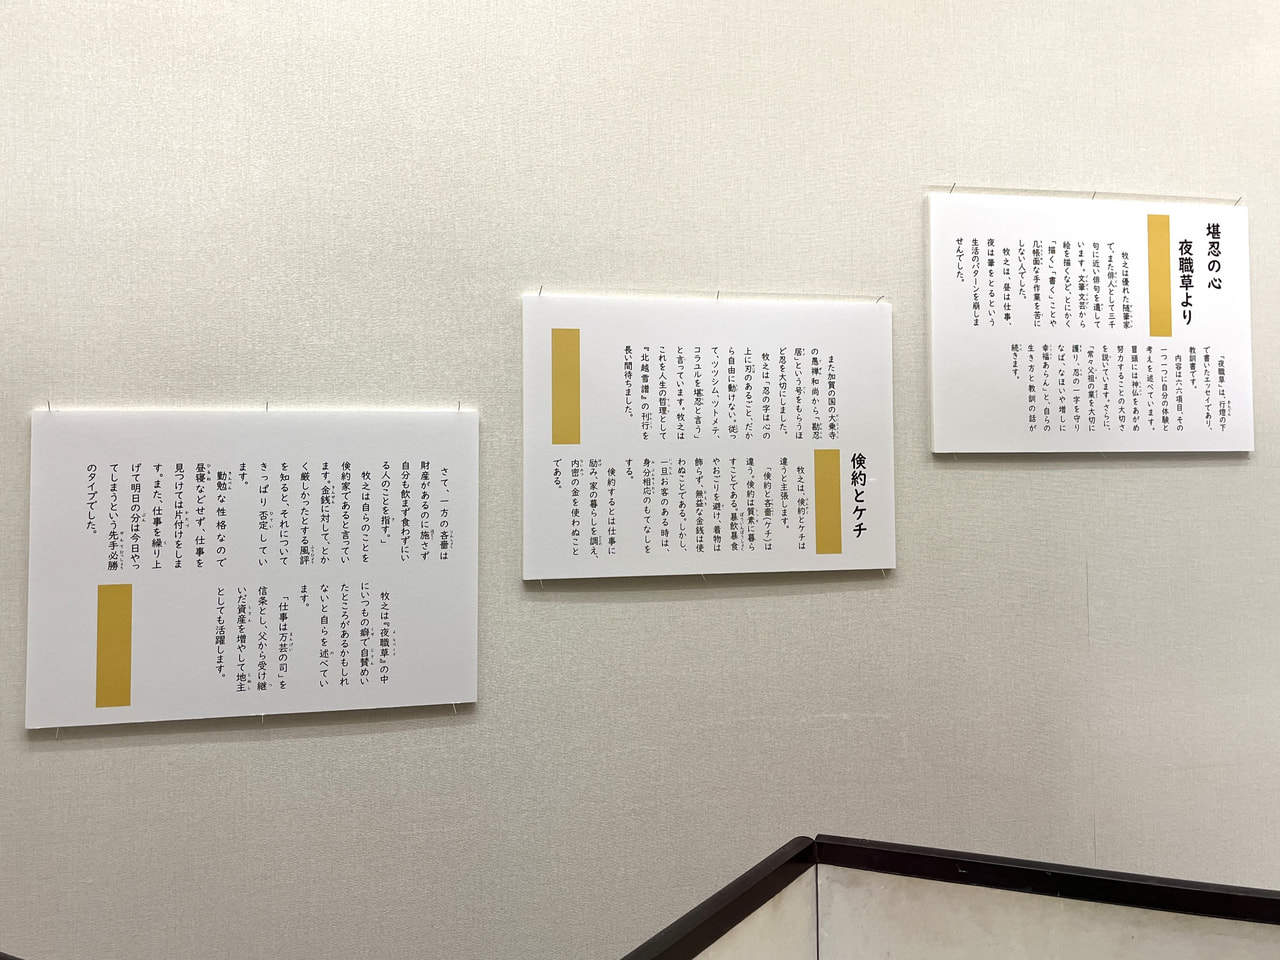 堪忍の心
夜職草より
牧之は優れた随筆家
で、また俳人として三千
句に近い俳句を遺して
います。文筆文芸から
絵を描くなど、とにかく
「描く」「書く」ことや
几帳面な手作業を苦に
しない人でした。
牧之は、昼は仕事、
夜は筆をとるという
生活のパターンを崩しま
せんでした。
「夜職草」は、行燈の下
で書いたエッセイであり、
教訓書です。
内容は六六項目、その
一つ一つに自分の体験と
考えを述べています。
冒頭には神仏をあがめ
努力することの大切さ
を説いています。さらに、
「常々父祖の業を大切に
護り、忍の一字を守り
なば、なほいや増しに
幸福あらん」と、自らの
生き方と教訓の話が
続きます。
また加賀の国の大乗寺
の愚禅和尚から「勘忍
居」という号をもらうほ
ど忍を大切にしました。
牧之は「忍の字は心の
上に刃のあること、だか
ら自由に動けない。従っ
て、ツツシム、ツトメテ、
コラユルを堪忍と言う」
と言っています。牧之は
これを人生の哲理として
『北越雪譜』の刊行を
長い間待ちました。
倹約とケチ
牧之は、倹約とケチは
違うと主張します。
「倹約と吝嗇(ケチ)は
違う。倹約は質素に暮ら
すことである。暴飲暴食
やおごりを避け、着物は
飾らず、無益な金銭は使
わぬことである。しかし、
一旦お客のある時は、
身分相応のもてなしを
する。
倹約するとは仕事に
励み、家の暮らしを調え、
内密の金を使わぬこと
である。
さて、一方の吝嗇は
財産があるのに施さず
自分も飲まず食わずにい
る人のことを指す。」
牧之は自らのことを
倹約家であると言ってい
ます。金銭に対して、とか
く厳しかったとする風評
を知ると、それについて
きっぱり否定してい
ます。
勤勉な性格なので
昼寝などせず、仕事を
見つけては片付けをしま
す。また、仕事を繰り上
げて明日の分は今日やっ
てしまうという先手必勝
のタイプでした。
牧之は『夜職草』の中
にいつもの癖で自賛めい
たところがあるかもしれ
ないと自らを述べてい
ます。
「仕事は万芸の司」を
信条とし、父から受け継
いだ資産を増やして地主
としても活躍します。